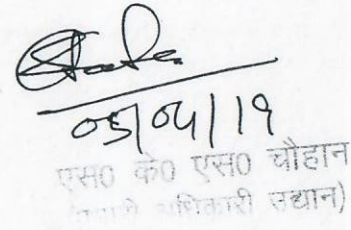 05/04/19
एस० के० एस० चौहान
(प्रभारी अधिकारी उद्यान)